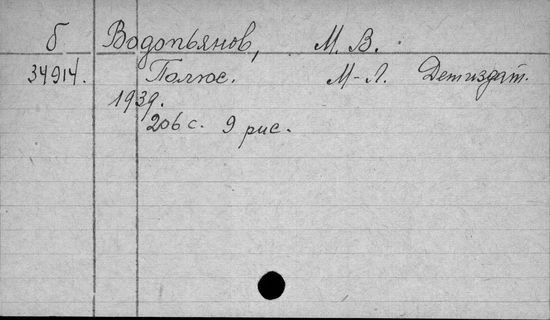 б Водопьянов, М. В.
34914. Полюс. М-Л. Детиздат.
1939.
206 с. 9 рис.